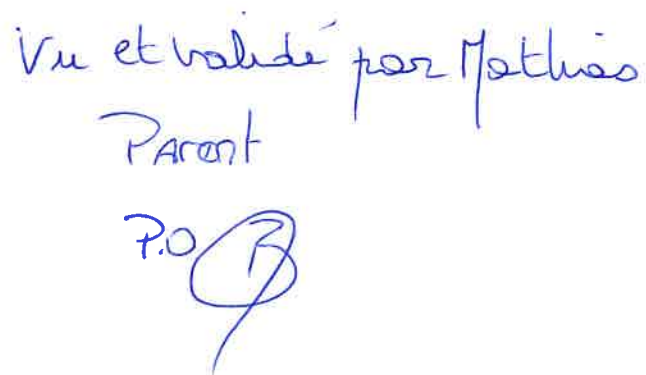 Vu et validé par Mathias
Parent
P.O